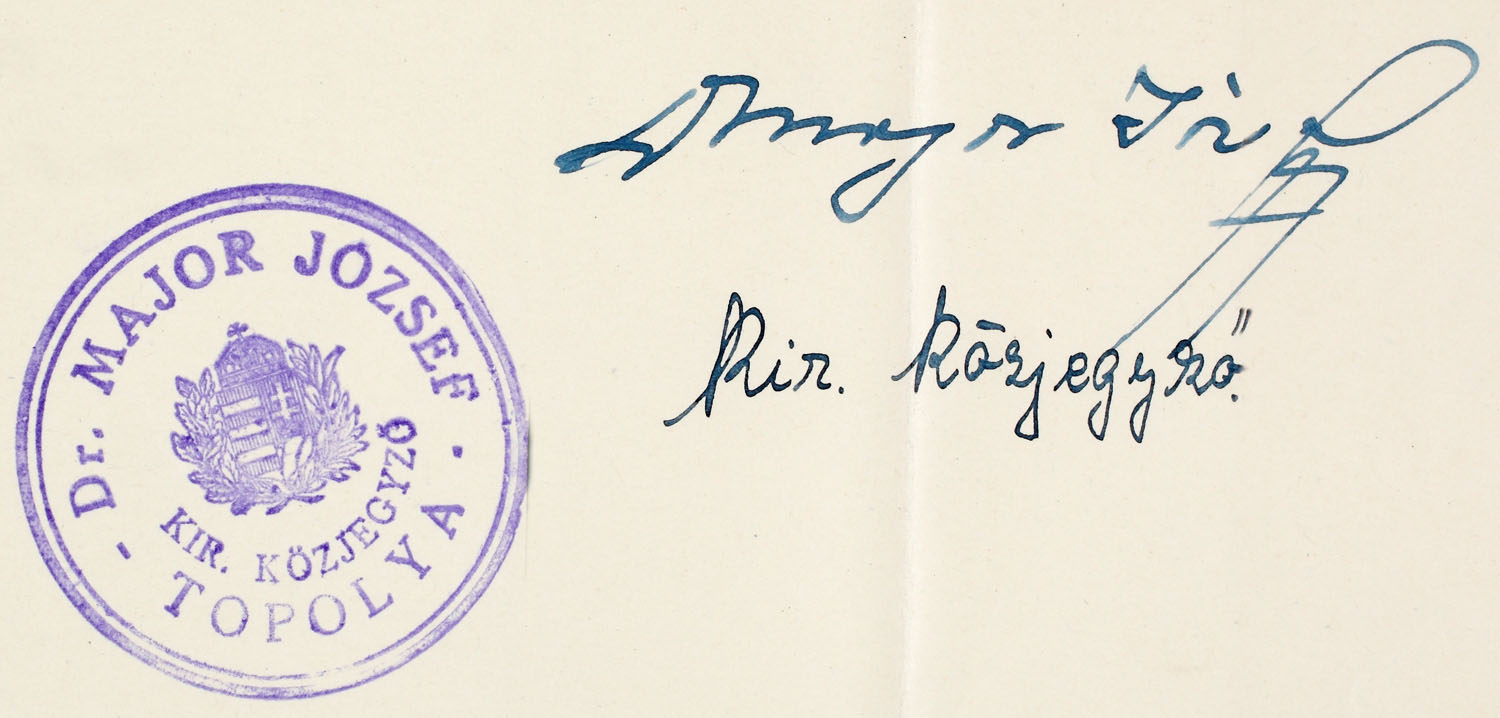 Dr Major József
Kir. Közjegyző.
Dr. MAJOR JÓZSEF
KIR. KÖZJEGYZŐ
- TOPOLYA -